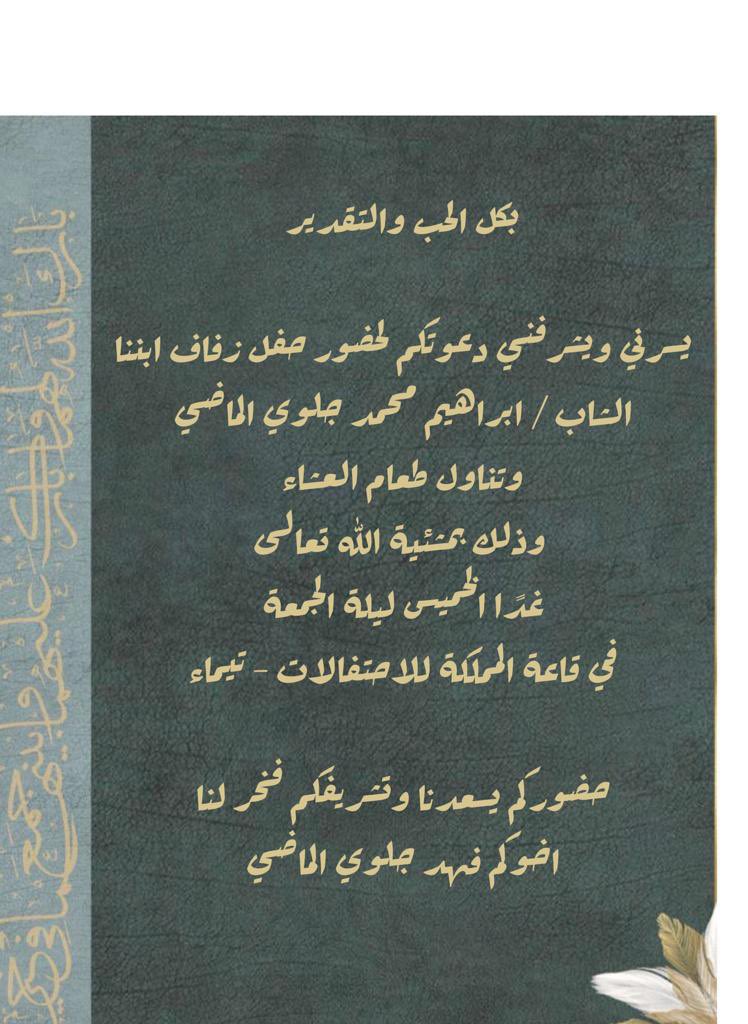 بكل الحب والتقدير
يسرني ويشرفني دعوتكم لحضور حفل زفاف ابننا
الشاب / ابراهيم محمد جلوي الماضي
وتناول طعام العشاء
وذلك بمشئية الله تعالى
غدًا الخميس ليلة الجمعة
في قاعة المملكة للاحتفالات - تيماء
حضوركم يسعدنا وتشريفكم فخر لنا
اخوكم فهد جلوي الماضي
بارك الله لهما وبارك عليهما وجمع بينهما في